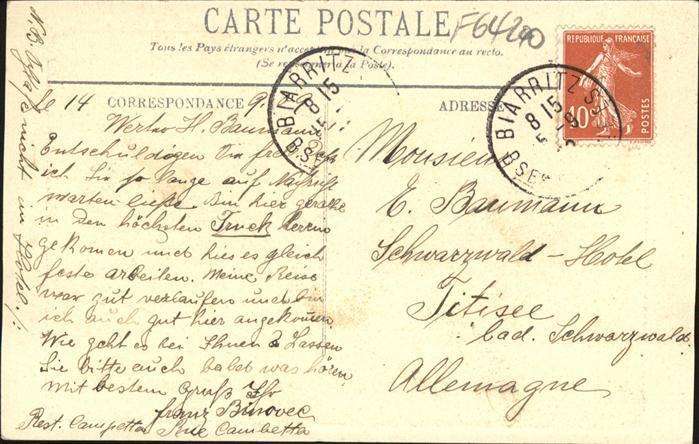 CARTE POSTALE
F64200
Tous les Pays étrangers n'acceptent pas la Correspondance au recto.
(Se renseigner à la Poste).
CORRESPONDANCE
ADRESSE
REPUBLIQUE FRANÇAISE
10c
POSTES
BIARRITZ
8 15
BSES
BIARRITZ
8 15
BSES
le 14 9.
Werter H. Baumann
Entschuldigen Sie
ich Sie so lange auf
warten ließe. Bin hier gerade
in den höchsten Truck herein
gekomen und hies es gleich
feste arbeiten. Meine Reise
war gut verlaufen und bin
ich auch gut hier angekomen.
Wie geht es bei Ihnen & Lassen
Sie bitte auch balt was hören
Mit bestem Gruß Ihr
Franz Binovec
Rest. Campetta Rue Cambetta
N.B. nicht im Hotel.
Monsieur
E. Baumann
Schwarzwald-Hotel
Titisee
bad. Schwarzwald
Allemagne